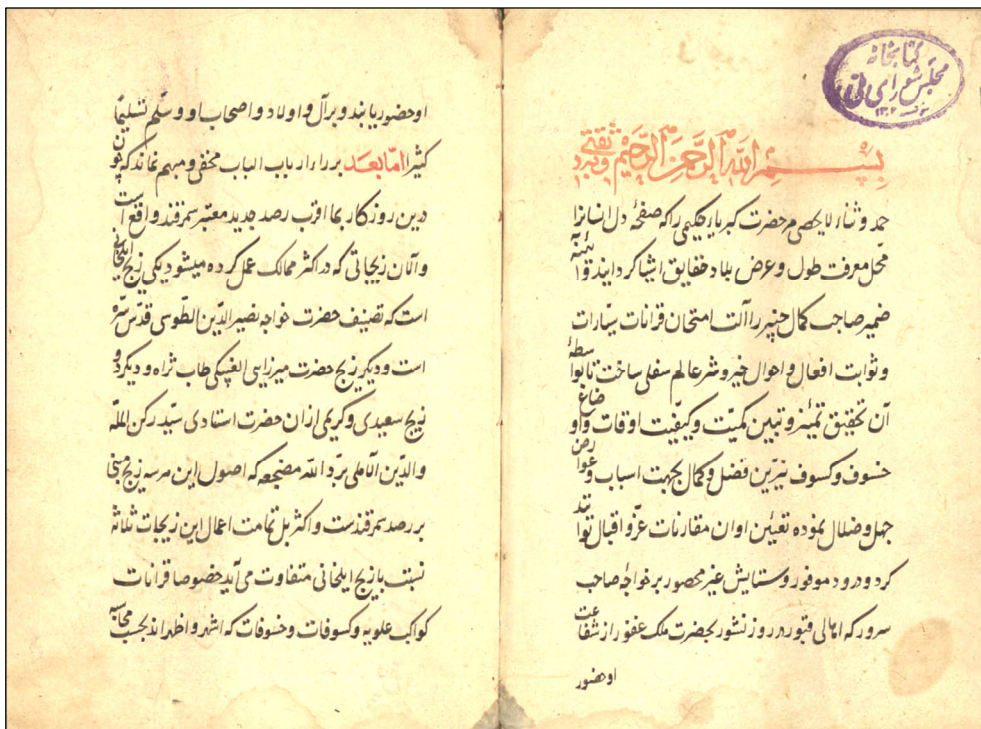 کتابخانه
مجلس شورای ملی
بسم الله الرحمن الرحیم وبه ثقتی
حمد و ثناء لایحصی مر حضرت کبریاء حکیمی را که صفحهٔ دل انسانرا
محل معرفت طول و عرض بلاد حقایق اشیا گردانید و آئینهٔ
ضمیر صاحب کمال خبیر را آلت امتحان قرانات سیارات
و ثوابت افعال و احوال خیر و شر عالم سفلی ساخت تا بواسطهٔ
آن تحقیق تمیز و تبین کمیت و کیفیت اوقات و اوضاع
خسوف و کسوف نیرین فضل و کمال بجهت اسباب و عوارض
جهل و ضلال نموده تعیین اوان مقارنات عز و اقبال توانند
کرد و درود موفور و ستایش غیر محصور بر خواجهٔ صاحب
سرور که اهالی قبور در روز نشور بحضرت ملک غفور از شفاعت
او حضور
او حضور یابند و بر آل و اولاد و اصحاب او و سلم تسلیما
کثیرا اما بعد بر رای ارباب الباب مخفی و مبهم نماند که چون
درین روزگار بما اقرب رصد جدید معتبر سمرقند واقع است
و آلان زیجاتی که در اکثر ممالک عمل کرده میشود یکی زیج ایلخانی
است که تصنیف حضرت خواجه نصیر الدین الطوسی قدس سره
است و دیگر زیج حضرت میرزایی الغبیکی طاب ثراه و دیگر دو
زیج سعیدی و کریمی از ان حضرت استادی سید رکن المله
والدین الآملی برد الله مضجعه که اصول این هر سه زیج مبنی
بر رصد سمرقندست و اکثر بل تمامت اعمال این زیجات ثلاثه
نسبت با زیج ایلخانی متفاوت می‌آید خصوصا قرانات
کواکب علویه و کسوفات و خسوفات که اشهر و اظهر اند بحسب محاسبه